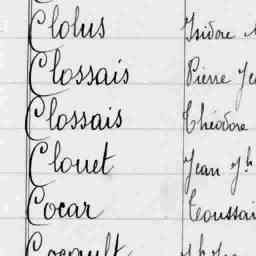 Clolus Isidore
Clossais Pierre
Clossais Théodore
Clouet Jean
Cocar Toussai
Cocault